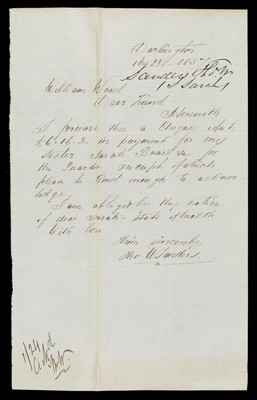 Darlington
1857
Sanders Thos W
(S Sarah)
William Wood
Dear Friend
Herewith
I forward thee a Cheque
£6.16.3 in payment for my
Sister Sarah Board &c for
the Quarter receipt of which
please be kind enough to acknow
ledge.
I am obliged by thy notice
of dear Sarah's state of health
With love
Thine sincerely
Tho. W Sanders.
1/24